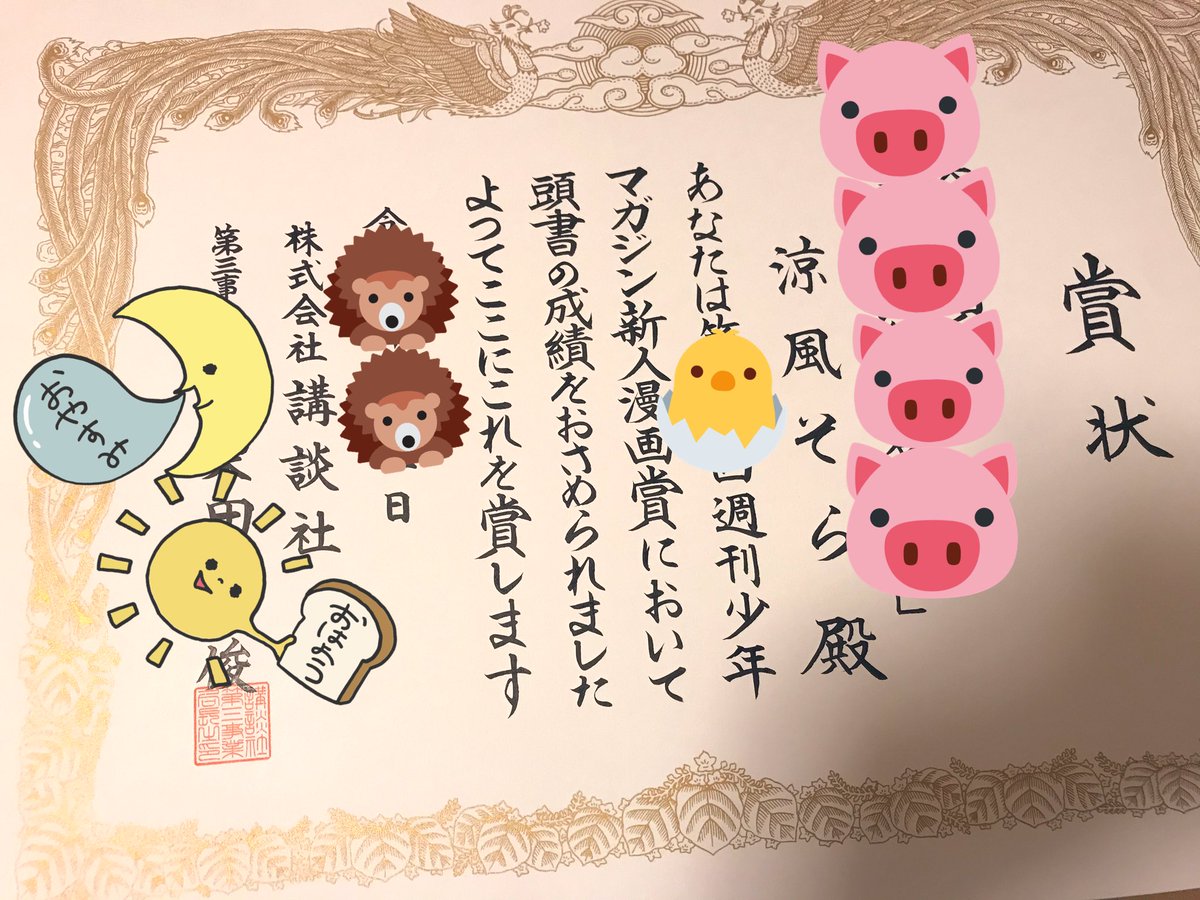 賞状
涼風そら殿
あなたは第 回週刊少年
マガジン新人漫画賞において
頭書の成績をおさめられました
よってここにこれを賞します
令 日
株式会社講談社
第三事 田 俊
講談社
第三事業
局長之印
おやすみ
おはよう